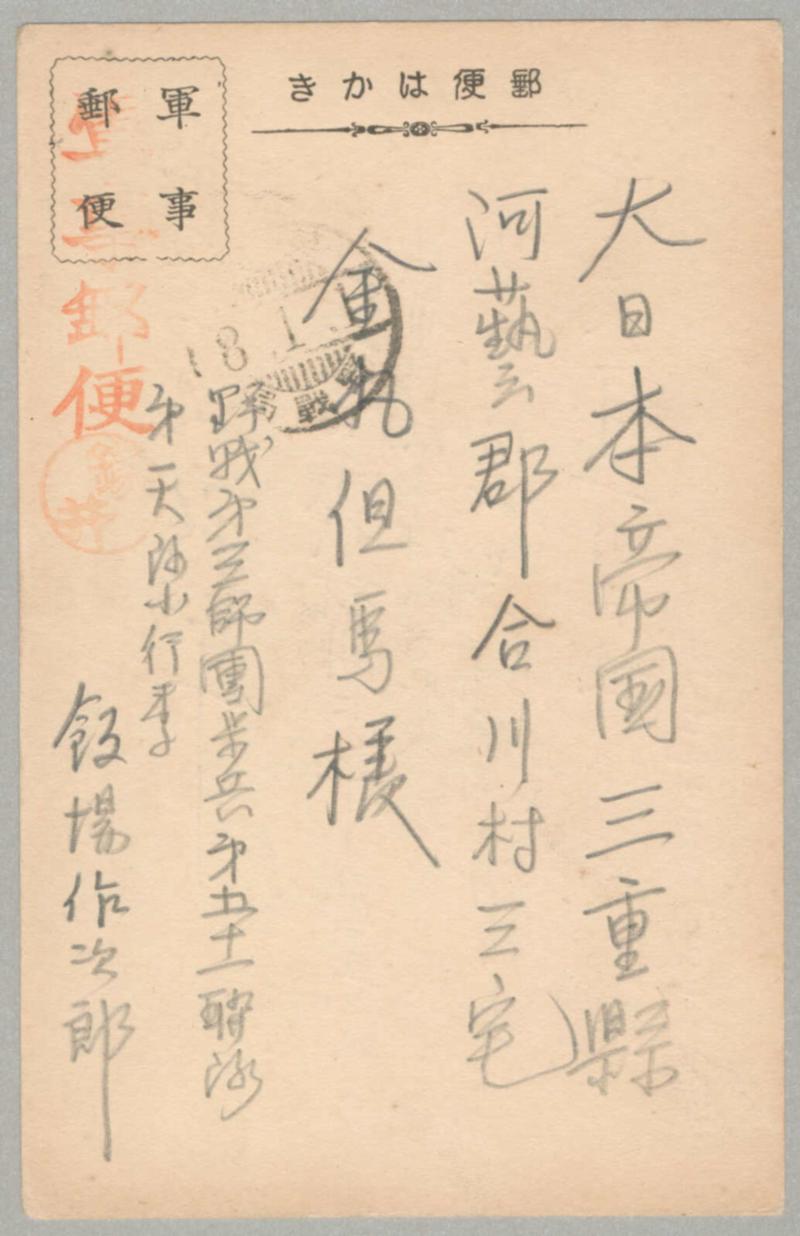 郵便はかき
軍事
郵便
軍事郵便
大日本帝国三重縣
河藝郡合川村三宅
金丸但馬様
野戰第三師團歩兵第五十一聯隊
第一大隊小行李
飯場作次郎
8.1.1
野戰